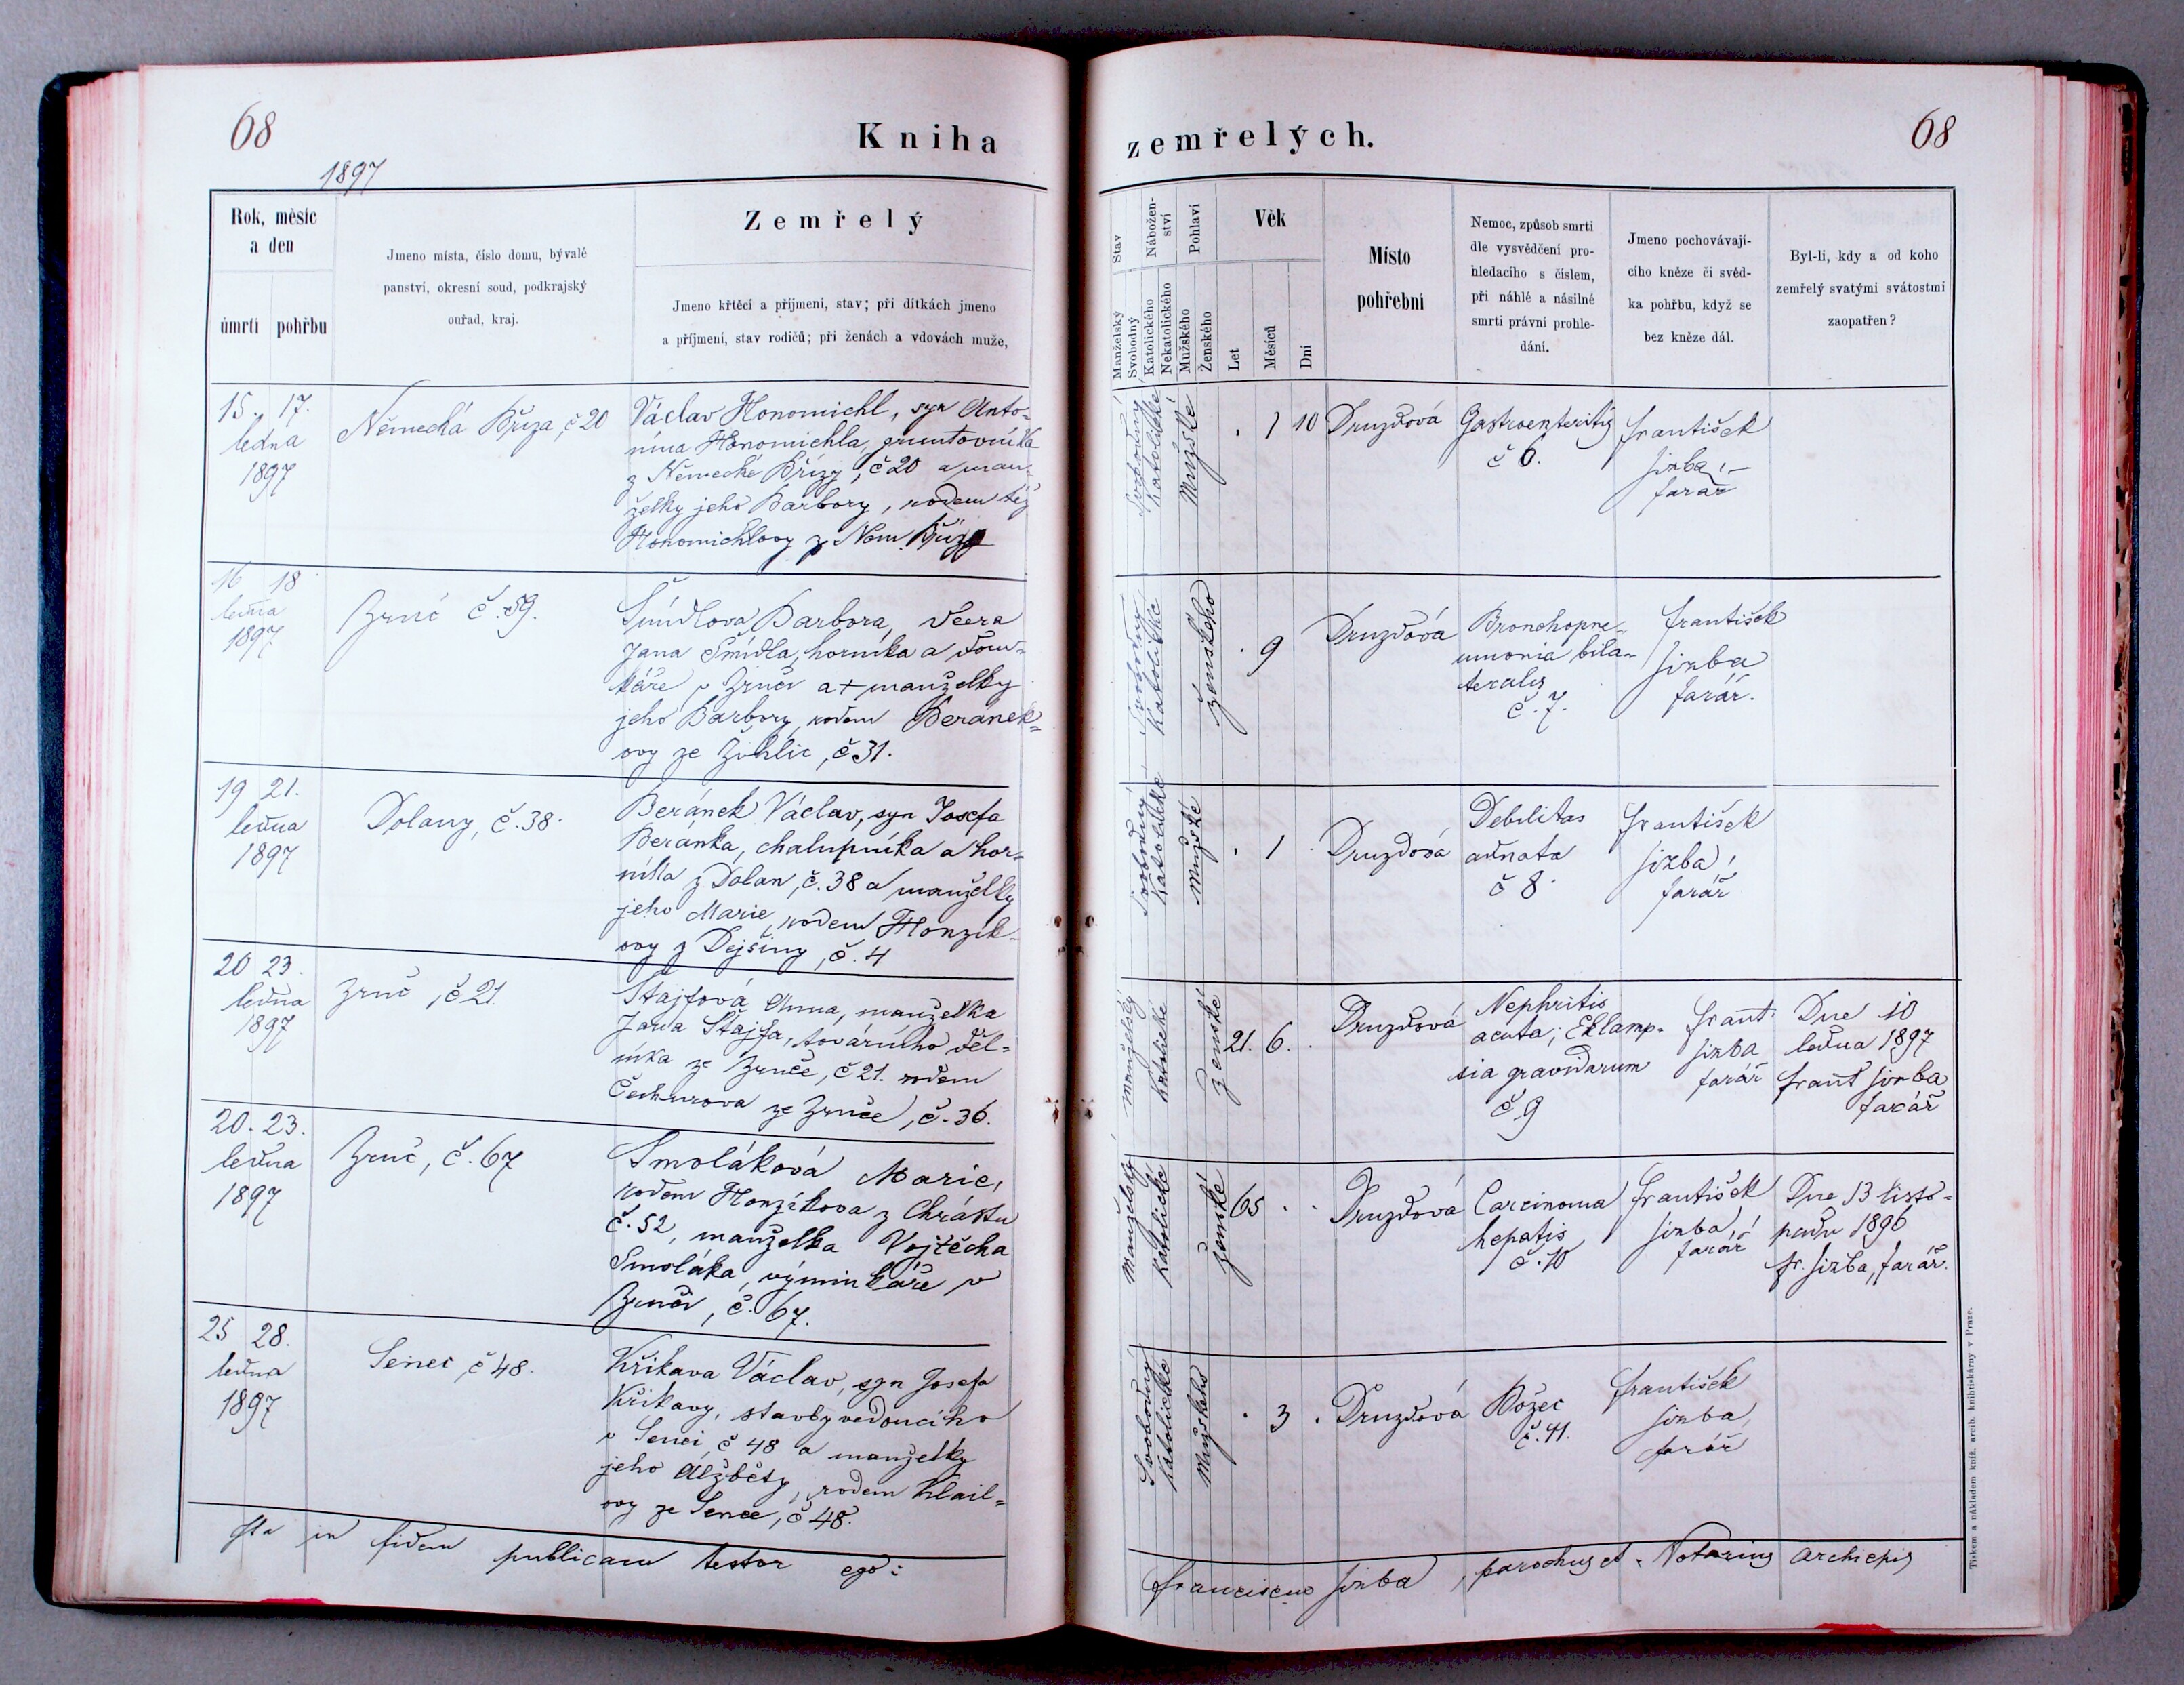 68
Kniha
1897
Rok, měsíc
a den
úmrtí pohřbu
Jmeno místa, číslo domu, bývalé
panství, okresní soud, podkrajský
ouřad, kraj.
Zemřelý
Jmeno křtěcí a příjmení, stav; při dítkách jmeno
a příjmení, stav rodičů; při ženách a vdovách muže,
15. 17.
ledna
1897
Německá Bříza, č 20
Václav Honomichl, syn Anto-
nína Honomichla, gruntovníka
z Německé Břízy, č 20 a man-
želky jeho Barbory, rodem též
Honomichlovy z Něm. Břízy
16 18
ledna
1897
Zruč č. 59.
Šmídlova Barbora, dcera
Jana Šmídla, horníka a dom-
káře v Zruči a + manželky
jeho Barbory, rodem Beránek-
ovy ze Žichlic, č 31.
19 21.
ledna
1897
Dolany, č. 38.
Beránek Václav, syn Josefa
Beránka, chalupníka a hor-
níka z Dolan, č. 38 a manželky
jeho Marie, rodem Honzík-
ovy z Dejšiny, č. 4
20 23.
ledna
1897
Zruč, č 21.
Štajfová Anna, manželka
Jana Štajfa, továrního děl-
níka ze Zruče, č 21. rodem
Čechurova ze Zruče, č. 36.
20. 23.
ledna
1897
Zruč, č. 67
Smoláková Marie,
rodem Honzíkova z Chrástu
č. 52, manželka Vojtěcha
Smoláka, výminkáře v
Zruči, č. 67.
25 28.
ledna
1897
Senec, č 48.
Křikava Václav, syn Josefa
Křikavy, stavbyvedoucího
v Senci, č 48 a manželky
jeho Alžběty, rodem Klail-
ovy ze Sence, č 48.
Ita in fidem publicam testor ego:
68
zemřelých.
Stav
Manželský
Svobodný
Nábožen-
ství
Katolického
Nekatolického
Pohlaví
Mužského
Ženského
Věk
Let
Měsíců
Dní
Místo
pohřební
Nemoc, způsob smrti
dle vysvědčení pro-
hledacího s číslem,
při náhlé a násilné
smrti právní prohle-
dání.
Jmeno pochovávají-
cího kněze či svěd-
ka pohřbu, když se
bez kněze dál.
Byl-li, kdy a od koho
zemřelý svatými svátostmi
zaopatřen?
Svobodný
Katolické
Mužské
. 1 10
Druzdová
Gastroenteritis
č 6.
František
Jizba,
farář
Svobodný
Katolické
ženského
. 9
Druzdová
Bronchopne-
umonia bila-
teralis
č. 7.
František
Jizba
farář.
Svobodný
Katolické
Mužské
. 1 .
Druzdová
Debilitas
adnata
č 8.
František
Jizba,
farář
manželský
katolické
ženské
21. 6. .
Druzdová
Nephritis
acuta; Eklamp-
sia gravidarum
č. 9
Frant.
Jizba
farář
Dne 10
ledna 1897
Frant Jizba
farář
Manželský
Katolické
ženské
65 . .
Druzdová
Carcinoma
hepatis
č. 10
František
Jizba,
farář
Dne 13 listo-
padu 1896
Fr. Jizba, farář.
Svobodný
Katolické
Mužského
. 3 .
Druzdová
Božec
č. 11.
František
Jizba,
farář
Franciscus Jizba, parochus et Notarius Archiepis
Tiskem a nákladem kníž. arcib. knihtiskárny v Praze.